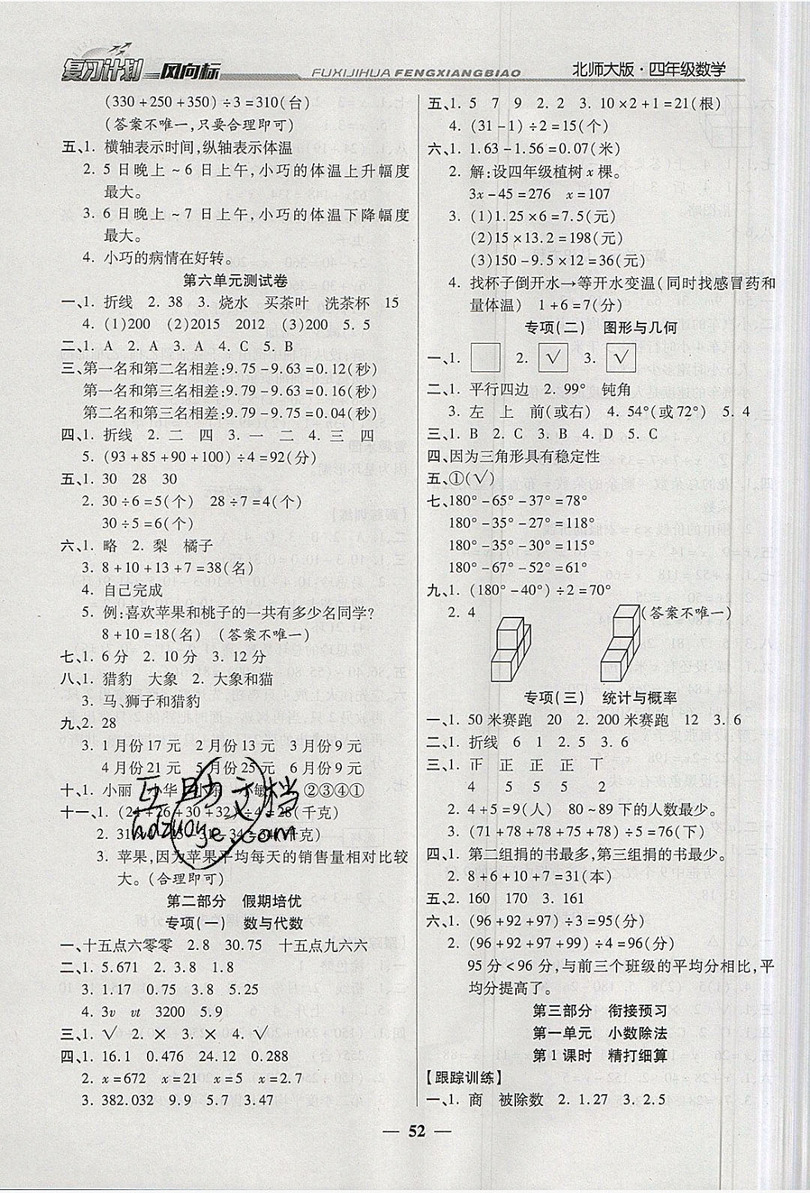 复习计划 风向标
FUXIJIHUA FENGXIANGBIAO
北师大版·四年级数学
(330+250+350)÷3=310(台)
(答案不唯一,只要合理即可)
五、1. 横轴表示时间,纵轴表示体温
2. 5日晚上~6日上午,小巧的体温上升幅度
最大。
3. 6日晚上~7日上午,小巧的体温下降幅度
最大。
4. 小巧的病情在好转。
第六单元测试卷
一、1. 折线 2. 38 3. 烧水 买茶叶 洗茶杯 15
4. (1)200 (2)2015 2012 (3)200 5. 5
二、1. A 2. A 3. A 4. C 5. B
三、第一名和第二名相差:9.75-9.63=0.12(秒)
第一名和第三名相差:9.79-9.63=0.16(秒)
第二名和第三名相差:9.79-9.75=0.04(秒)
四、1. 折线 2. 二 四 3. 一 二 4. 三 四
5. (93+85+90+100)÷4=92(分)
五、1. 30 28 30
2. 30÷6=5(个) 28÷7=4(个)
30÷5=6(个)
六、1. 略 2. 梨 橘子
3. 8+10+13+7=38(名)
4. 自己完成
5. 例:喜欢苹果和桃子的一共有多少名同学?
8+10=18(名) (答案不唯一)
七、1. 6分 2. 10分 3. 12分
八、1. 猎豹 大象 2. 大象和猫
3. 马、狮子和猎豹
九、2. 28
3. 1月份17元 2月份13元 3月份9元
4月份21元 5月份25元 6月份9元
十、1. 小丽 小华 小乐 小敏 2. ②③④①
十一、1. (24+26+30+32)÷4=28(千克)
3. 苹果,因为苹果平均每天的销售量相对比较
大。(合理即可)
互助文档
hdzuoye.com
第二部分 假期培优
专项(一) 数与代数
一、十五点六零零 2.8 30.75 十五点九六六
二、1. 5.671 2. 3.8 1.8
3. 1.17 0.75 3.8 5.25
4. 3v vt 3200 5.9
三、1. √ 2. × 3. × 4. √
四、1. 16.1 0.476 24.12 0.288
2. x=672 x=21 x=5 x=2.7
3. 382.032 9.9 5.7 3.47
五、1. 5 7 9 2. 2 3. 10×2+1=21(根)
4. (31-1)÷2=15(个)
六、1. 1.63-1.56=0.07(米)
2. 解:设四年级植树x棵。
3x-45=276 x=107
3. (1)1.25×6=7.5(元)
(2)15×13.2=198(元)
(3)150-9.5×12=36(元)
4. 找杯子倒开水→等开水变温(同时找感冒药和
量体温) 1+6=7(分)
专项(二) 图形与几何
一、1. 2. √ 3. √
二、1. 平行四边 2. 99° 钝角
3. 左 上 前(或右) 4. 54°(或72°) 5. 4
三、1. B 2. C 3. B 4. D 5. C
四、因为三角形具有稳定性
五、①(√)
七、180°-65°-37°=78°
180°-35°-27°=118°
180°-35°-30°=115°
180°-67°-52°=61°
九、1. (180°-40°)÷2=70°
2. 4 (答案不唯一)
专项(三) 统计与概率
一、1. 50米赛跑 20 2. 200米赛跑 12 3. 6
二、1. 折线 6 1 2. 5 3. 6
三、1. 正 正 正 正 丅
4 5 5 5 2
2. 4+5=9(人) 80~89下的人数最少。
3. (71+78+78+75+78)÷5=76(下)
四、1. 第二组捐的书最多,第三组捐的书最少。
2. 8+6+10+7=31(本)
五、2. 160 170 3. 161
六、1. (96+92+97)÷3=95(分)
2. (96+92+97+99)÷4=96(分)
95分<96分,与前三个班级的平均分相比,平
均分提高了。
第三部分 衔接预习
第一单元 小数除法
第1课时 精打细算
【跟踪训练】
一、1. 商 被除数 2. 1.27 3. 2.5
52